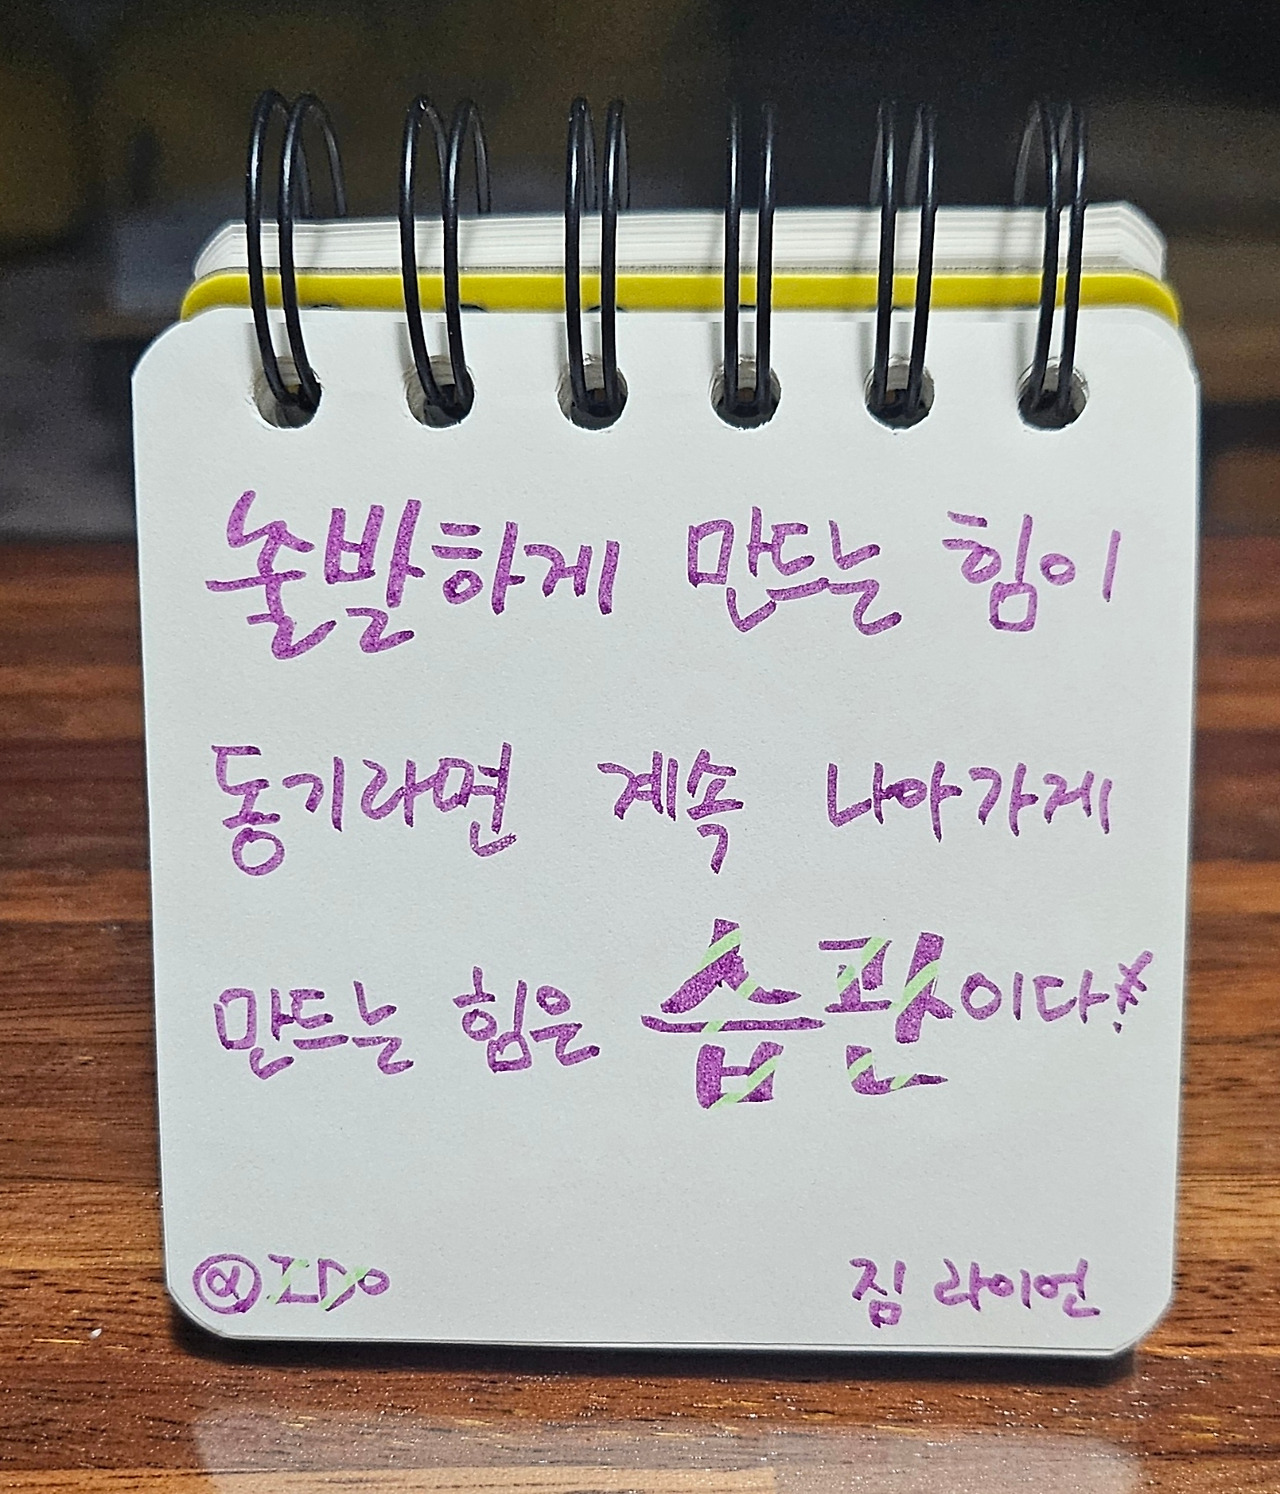 출발하게 만드는 힘이
동기라면 계속 나아가게
만드는 힘은 습관이다.
짐 라이언